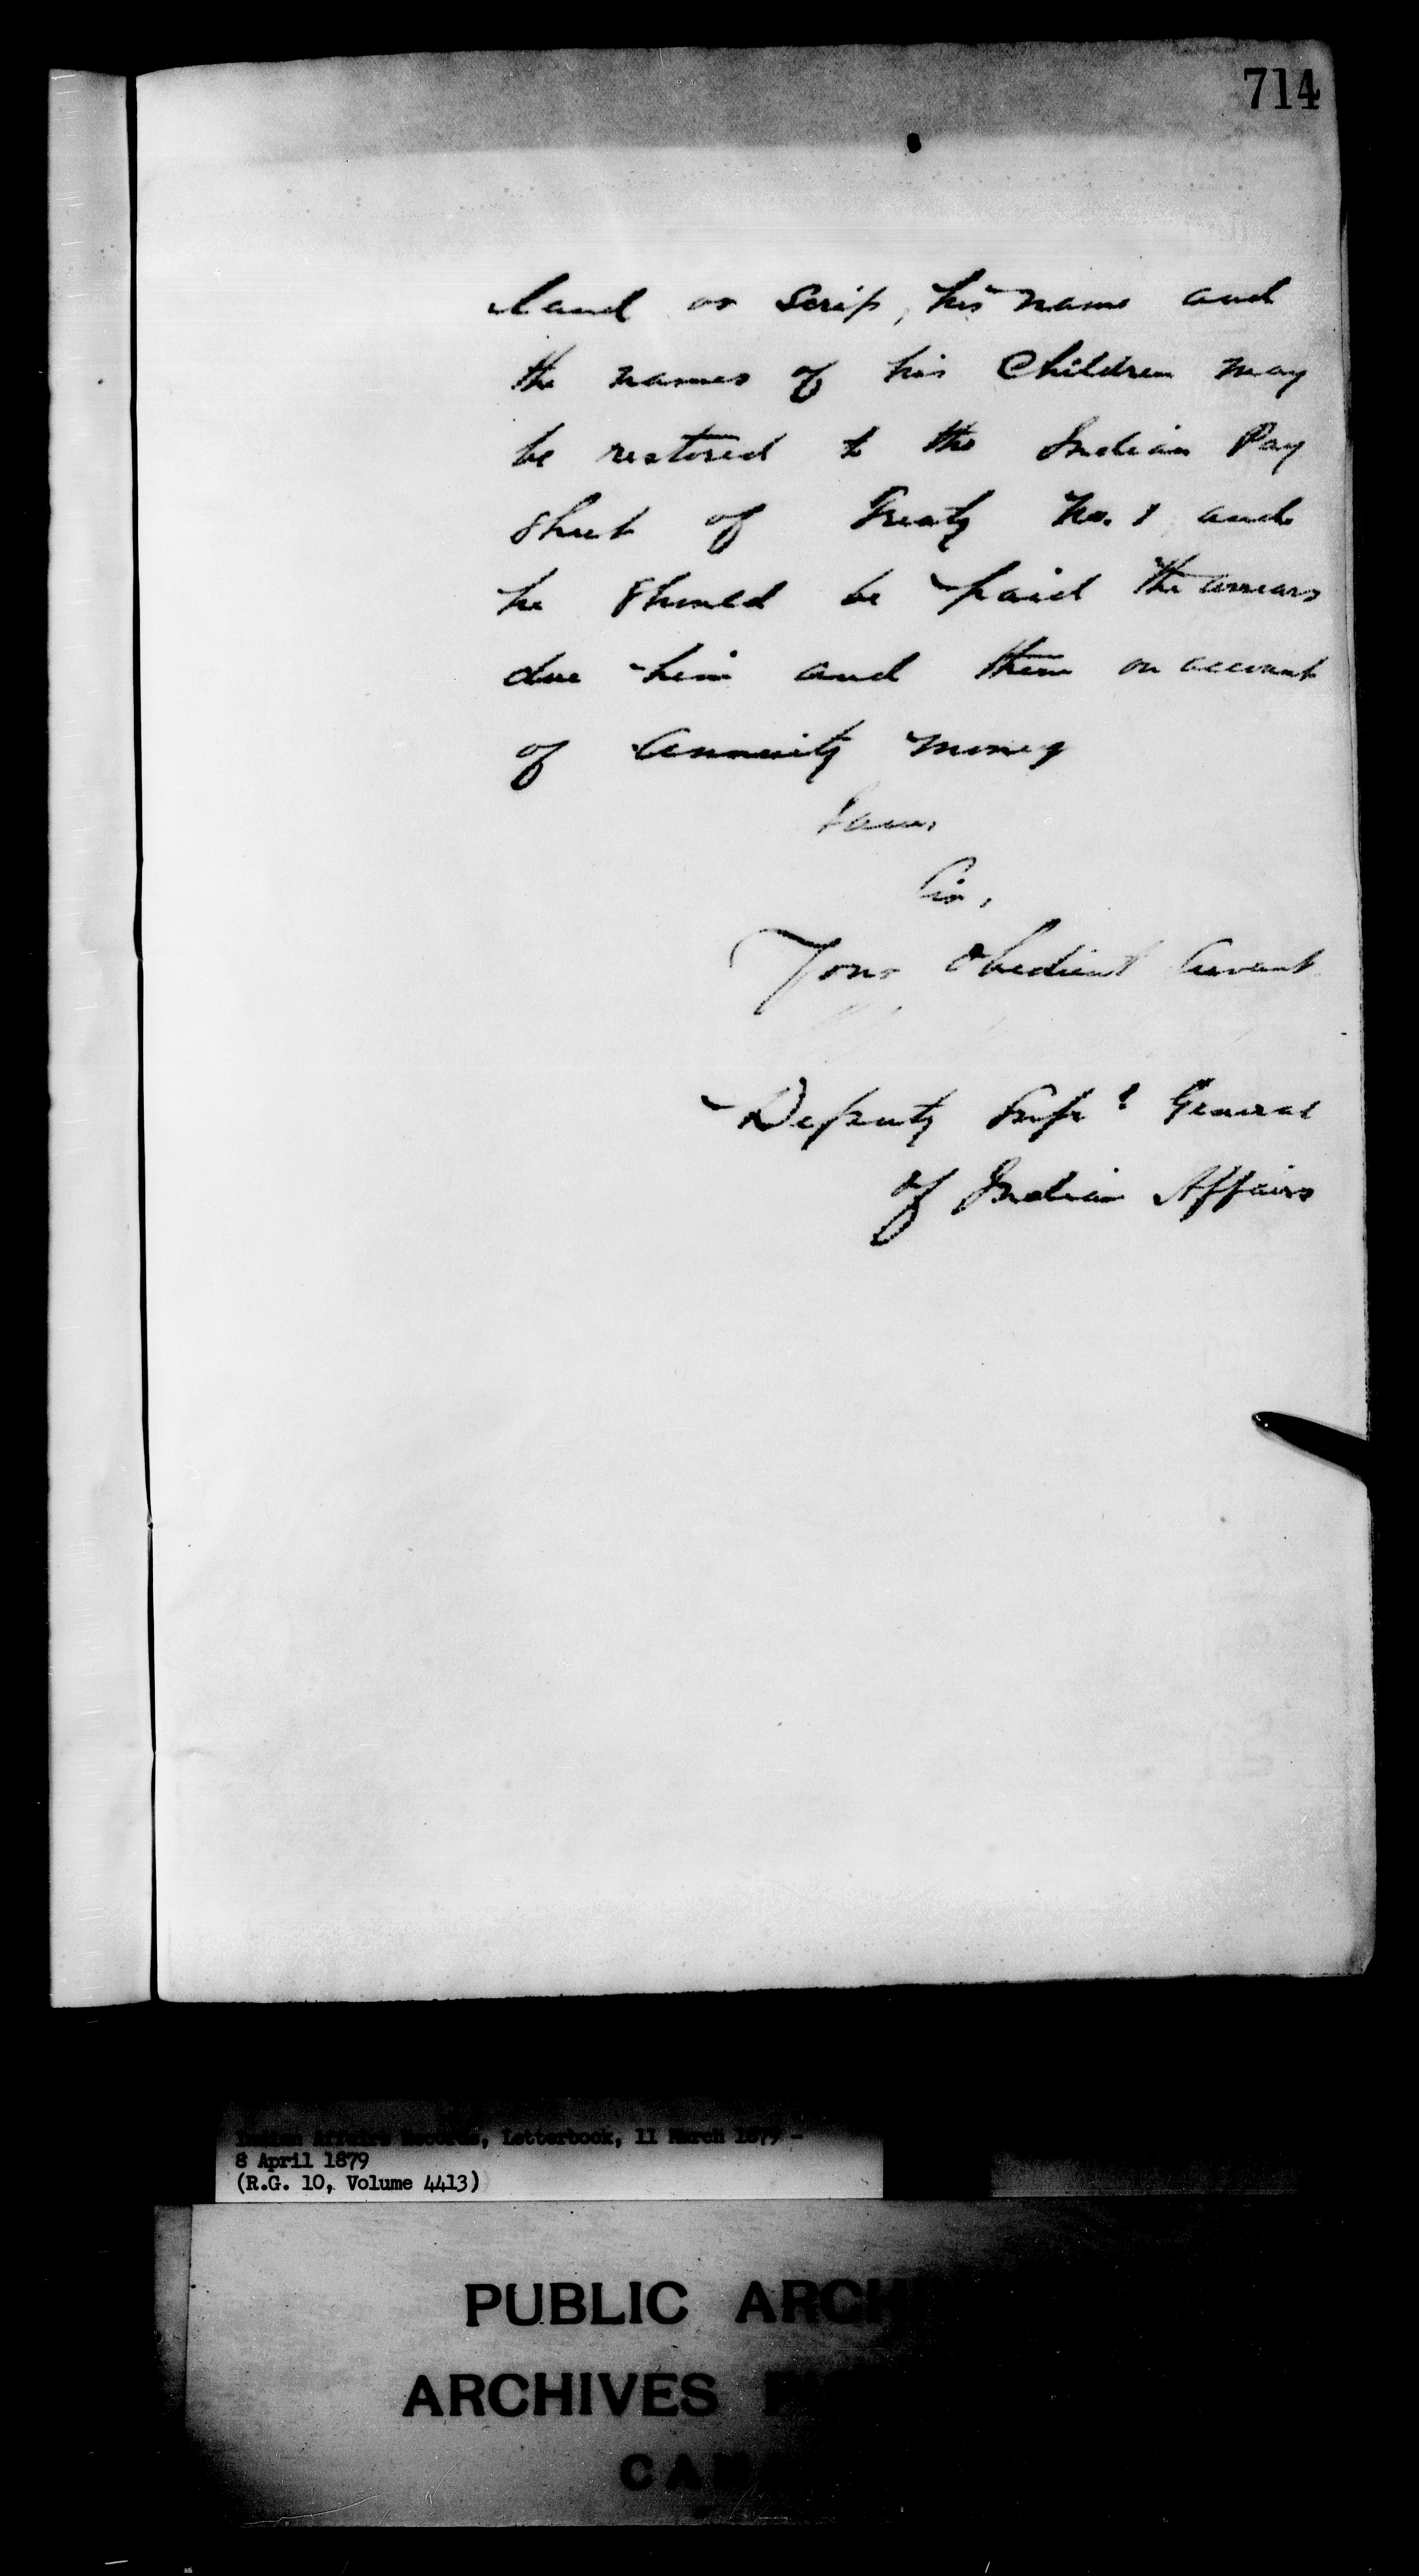 714
land or Scrip, his name and
the names of his Children may
be restored to the Indian Pay
Sheet of Treaty No. 1 and
he should be paid the arrears
due him and them on account
of Annuity money
I am,
Sir,
Your Obedient Servant
Deputy Supt General
of Indian Affairs
Indian Affairs Records, Letterbook, 11 March 1879 -
8 April 1879
(R.G. 10, Volume 4413)
PUBLIC ARCH
ARCHIVES
CANA